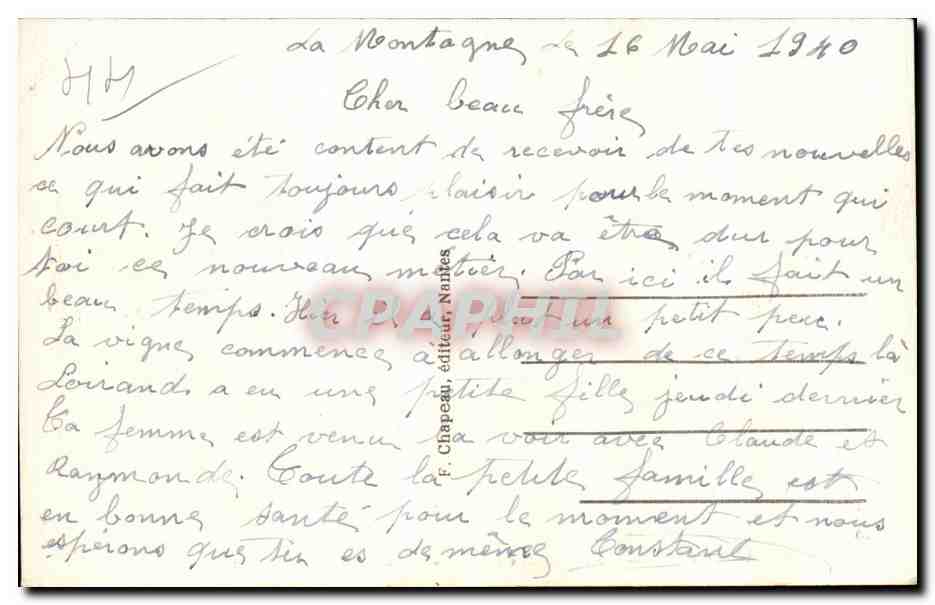 La Montagne Le 16 Mai 1940
Cher beau frère
Nous avons été content de recevoir de tes nouvelles
ce qui fait toujours plaisir pour le moment qui
court. Je crois que cela va être dur pour
toi ce nouveau métier. Par ici il fait un
beau temps. Hier il a plut un petit peu.
La vigne commence à allonger de ce temps là
Loirand a eu une petite fille jeudi dernier
Ta femme est venu la voir avec Claude et
Raymonde. Toute la petite famille est
en bonne santé pour le moment et nous
espérons que tu es de même Constant
F. Chapeau, éditeur, Nantes
CPAPHIL